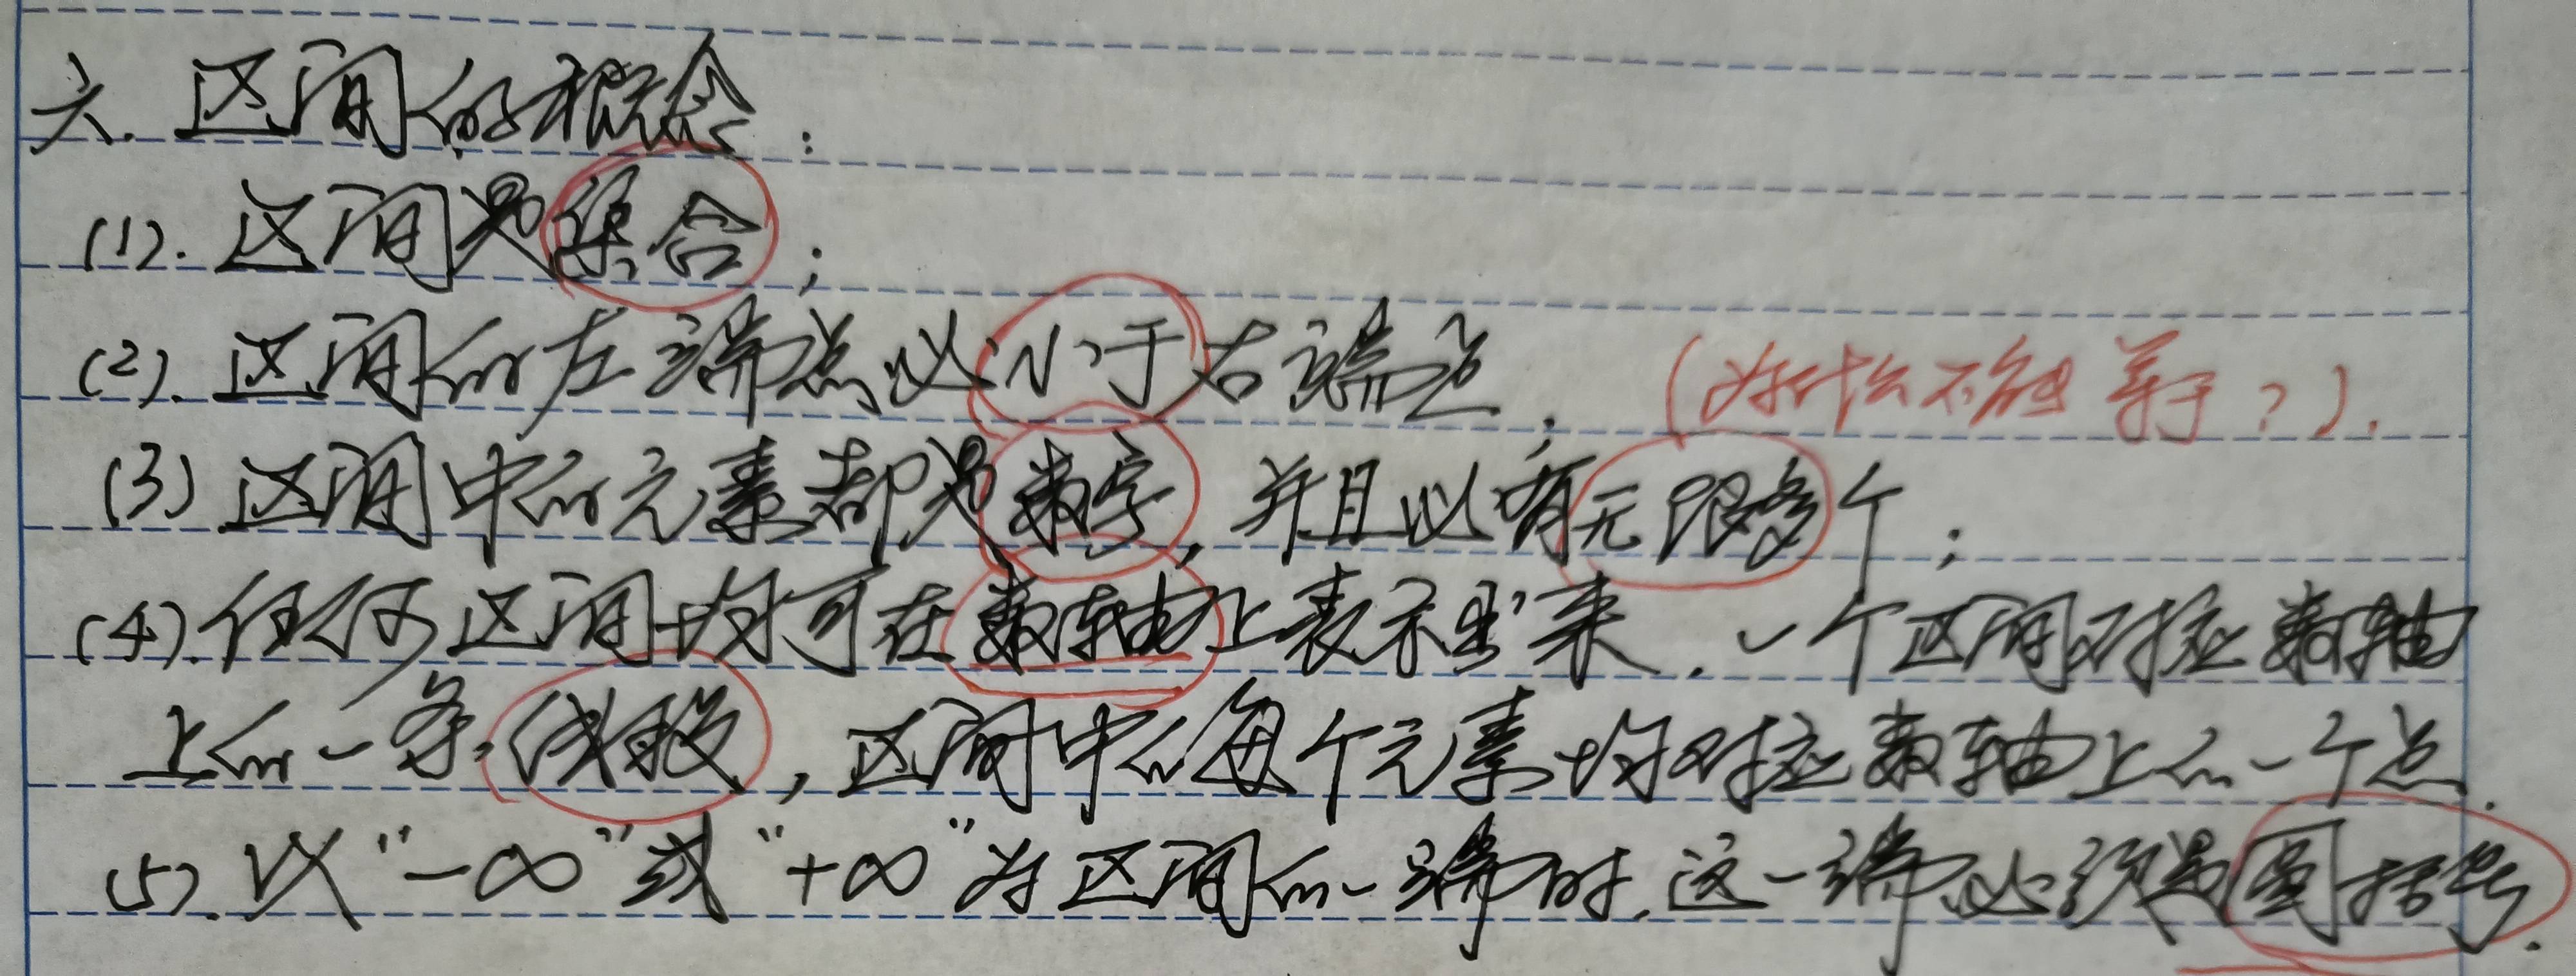 六. 区间的概念：
(1). 区间是集合；
(2). 区间的左端点必小于右端点； (为什么不能等于？).
(3) 区间中的元素都是数字，并且必有无限多个；
(4). 任何区间均可在数轴上表示出来. 一个区间对应数轴
上的一条线段，区间中的每个元素均对应数轴上的一个点.
(5). 以“-∞”或“+∞”为区间的一端时，这一端必须是圆括号.